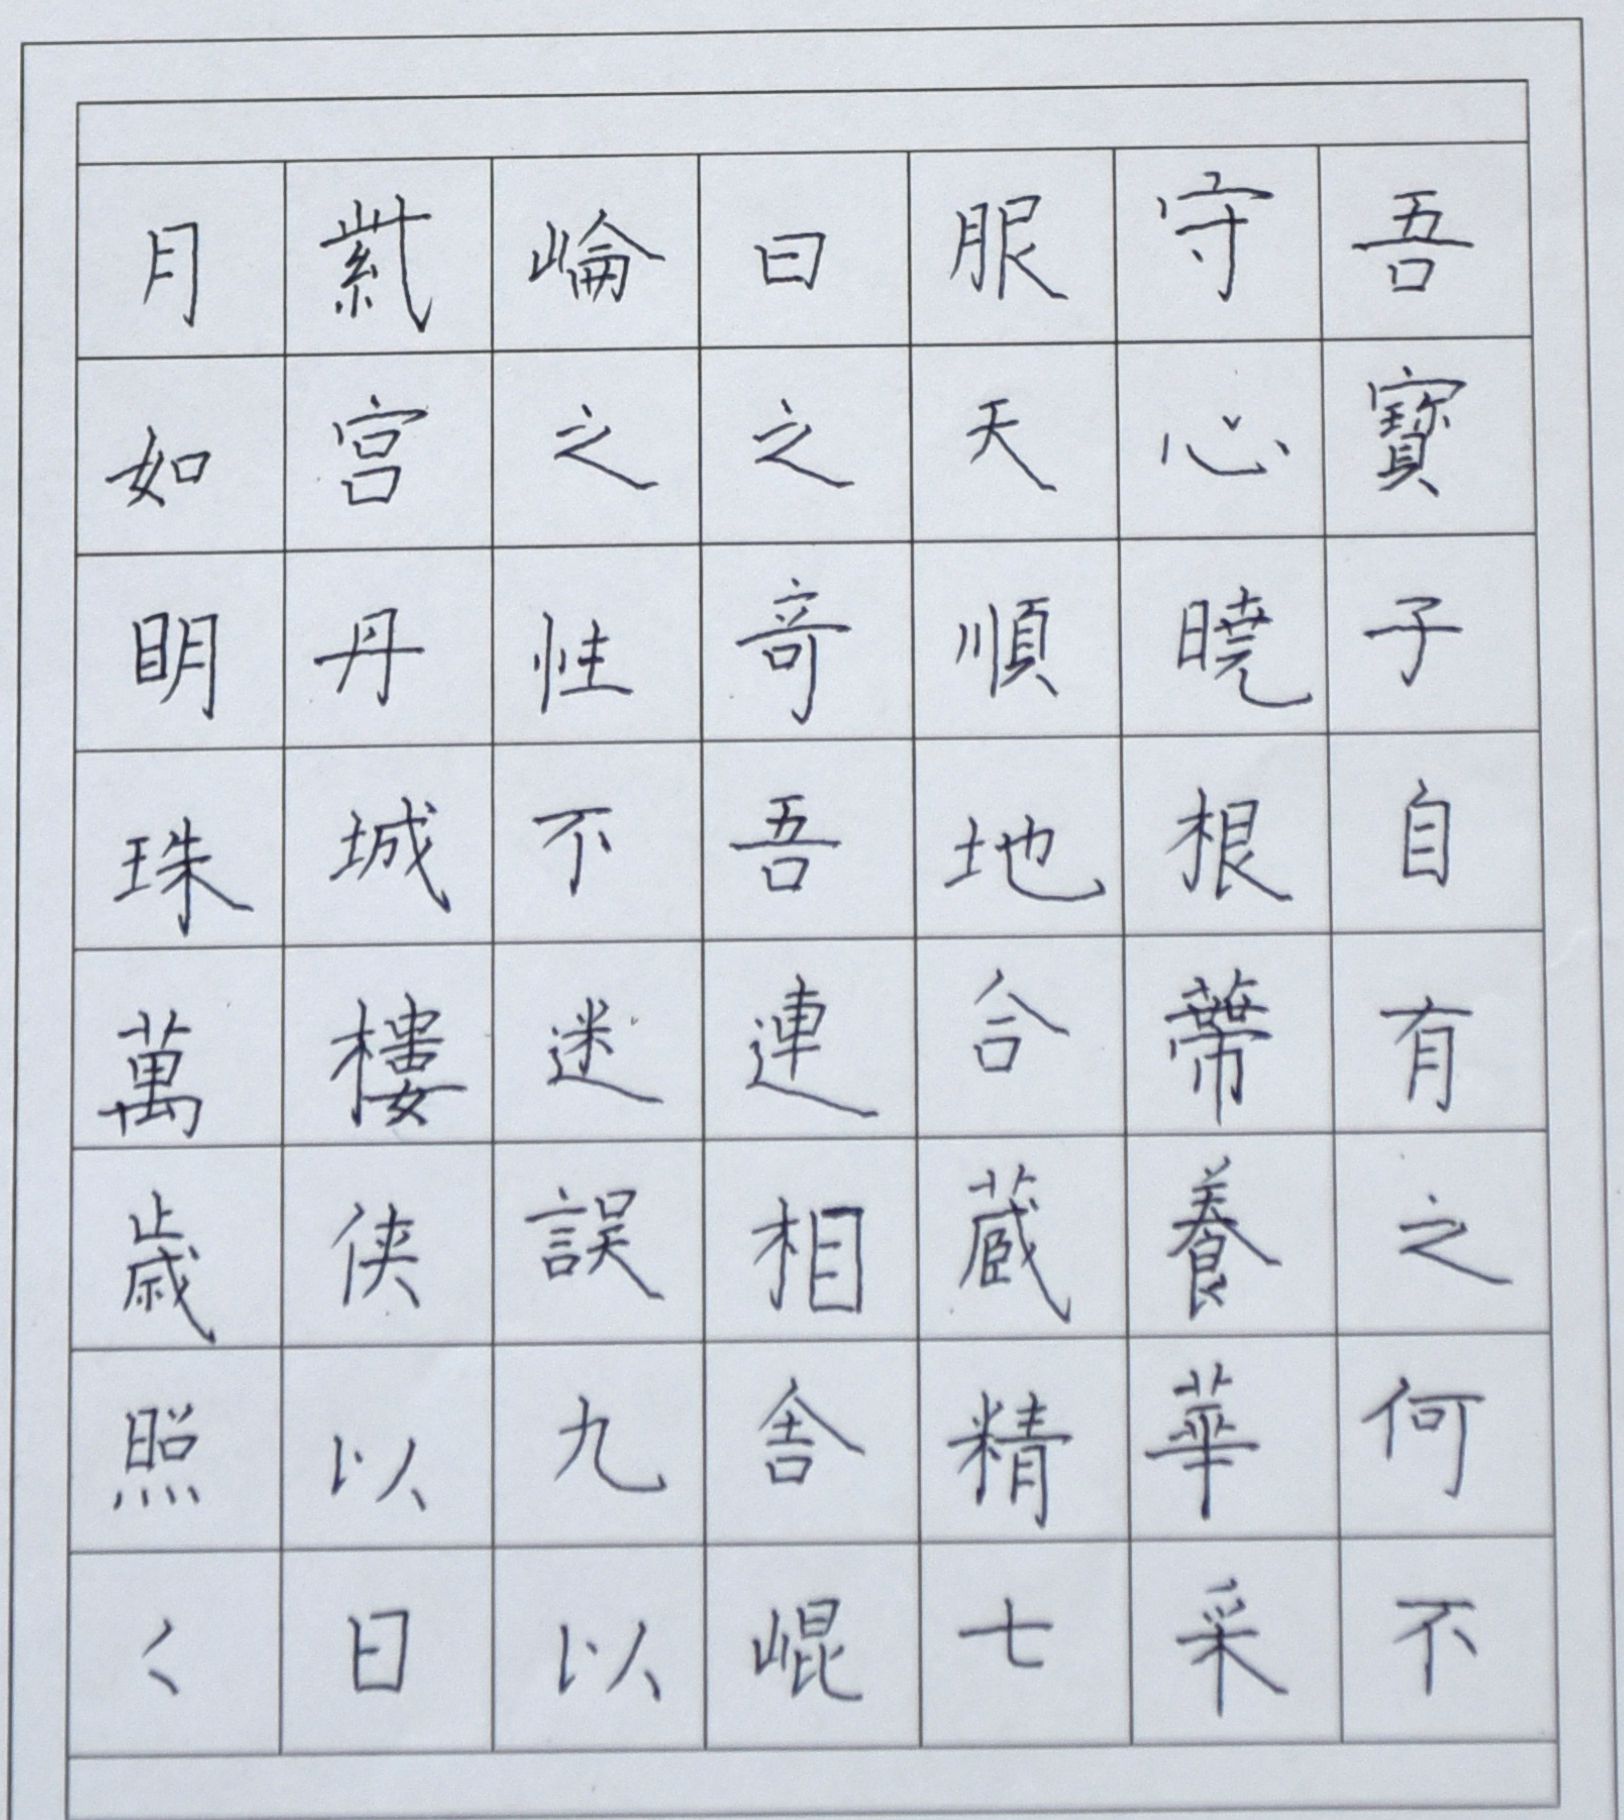 吾寶子自有之何不
守心曉根蔕養華采
服天順地合藏精七
日之奇吾連相舍崐
崘之性不迷誤九以
紫宮丹城樓俠以日
月如明珠萬歳照く